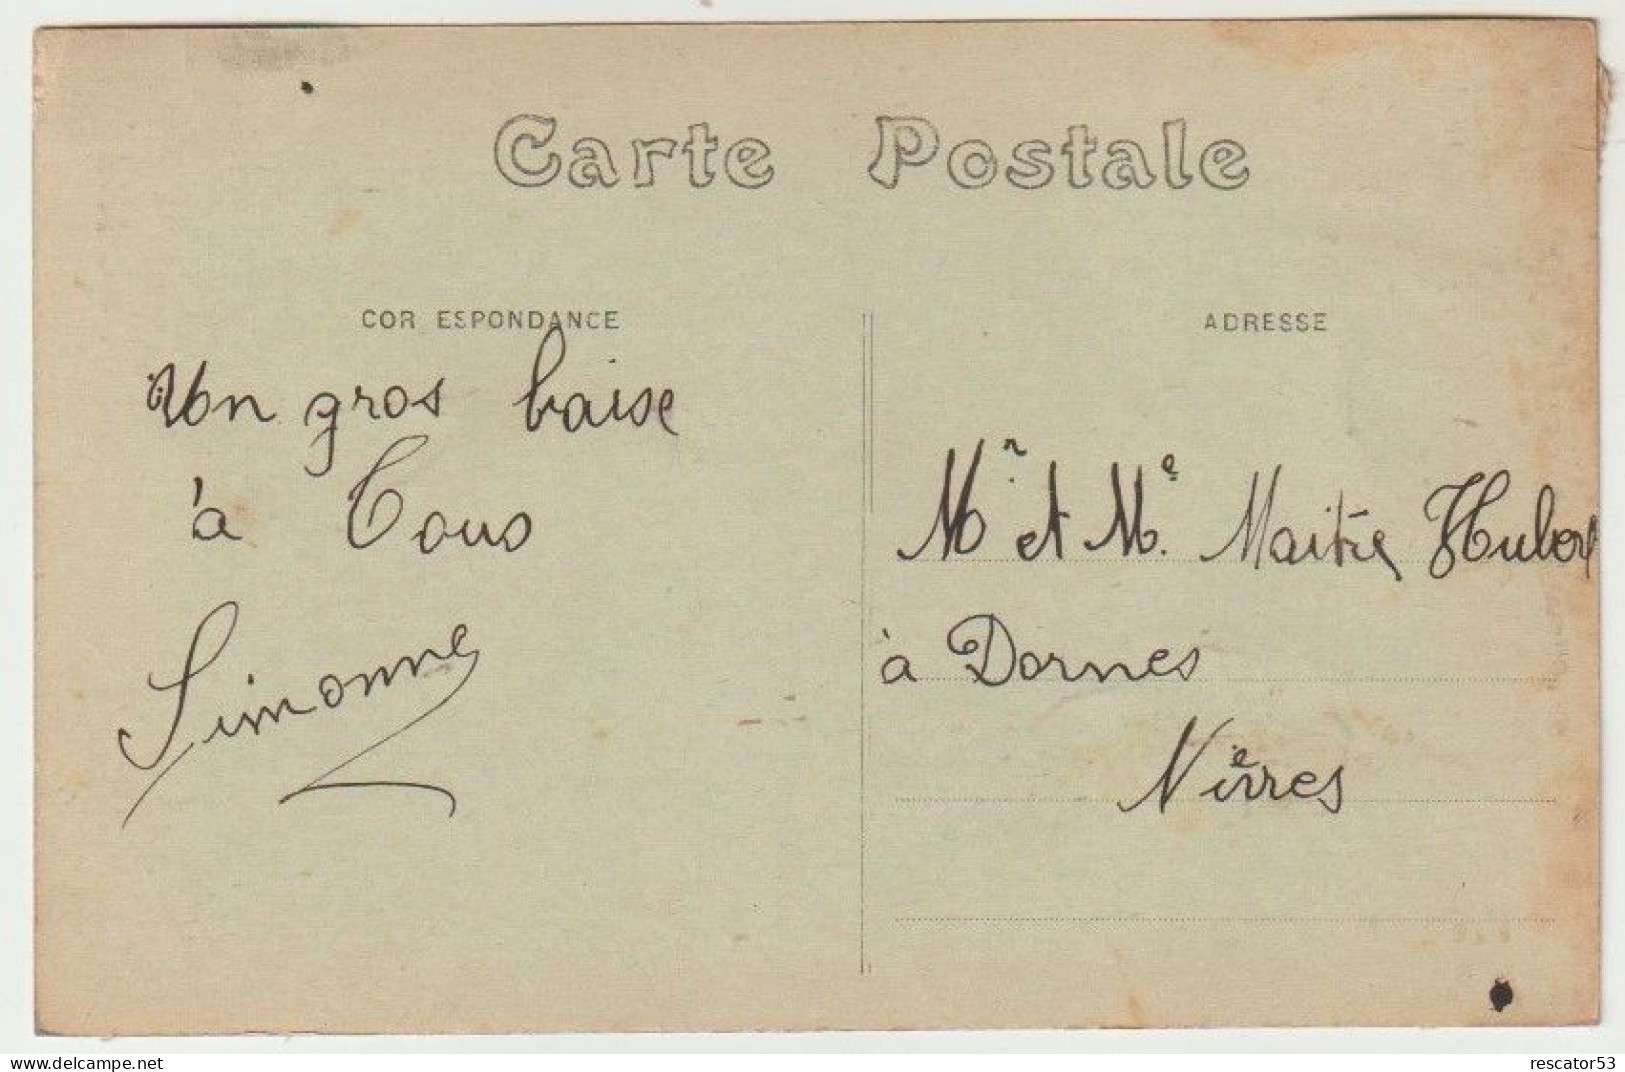 Carte Postale
COR ESPONDANCE
Un gros baise
à Tous
Simonne
ADRESSE
Mr. et Me. Maitre Hubert
à Dornes
Nièvres
www.delcampe.net
rescator53